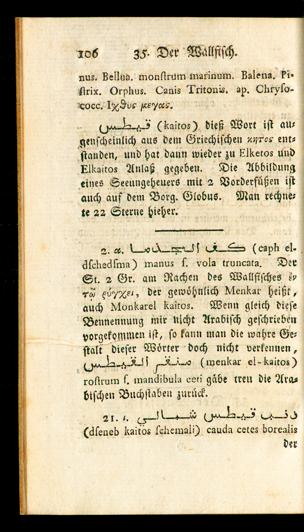 106 35. Der Wallfisch.
nus. Bellua. monstrum marinum. Balena. Pi-
strix. Orphus. Canis Tritonis. ap. Chryso-
cocc. Ιχθυς μεγας.
قيطس (kaitos) dieß Wort ist au-
genscheinlich aus dem Griechischen κητος ent-
standen, und hat dann wieder zu Elketos und
Elkaitos Anlaß gegeben. Die Abbildung
eines Seeungeheuers mit 2 Vorderfüßen ist
auch auf dem Borg. Globus. Man rechne-
te 22 Sterne hieher.
2. α. كف الجذما (caph el-
dschedsma) manus s. vola truncata. Der
St. 2 Gr. am Rachen des Wallfisches ἐν
τῷ ῥύγχει, der gewöhnlich Menkar heißt,
auch Monkarel kaitos. Wenn gleich diese
Bennennung mir nicht Arabisch geschrieben
vorgekommen ist, so kann man die wahre Ge-
stalt dieser Wörter doch nicht verkennen,
منقر القيطس (menkar el-kaitos)
rostrum s. mandibula ceti gäbe treu die Ara-
bischen Buchstaben zurück.
21. ι. ذنب قيطس شمالي
(dseneb kaitos schemali) cauda cetes borealis
der